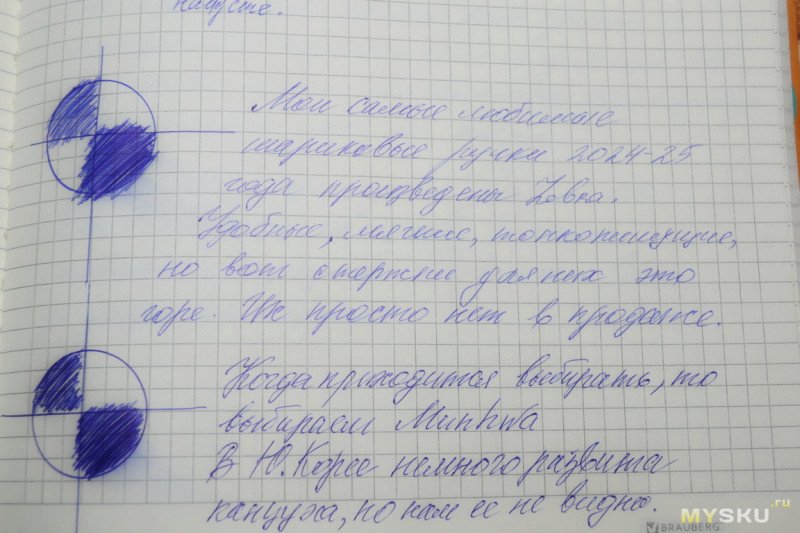 Мои самые любимые
шариковые ручки 2024-25
года произведены Zebra.
Удобные, мягкие, тонкопишущие,
но вот стержни для них это
горе. Их просто нет в продаже.
Когда приходится выбирать, то
выбираем Munhwa
В Ю. Корее немного развита
канцуха, но нам ее не видно.
MYSKU.ru
BRAUBERG